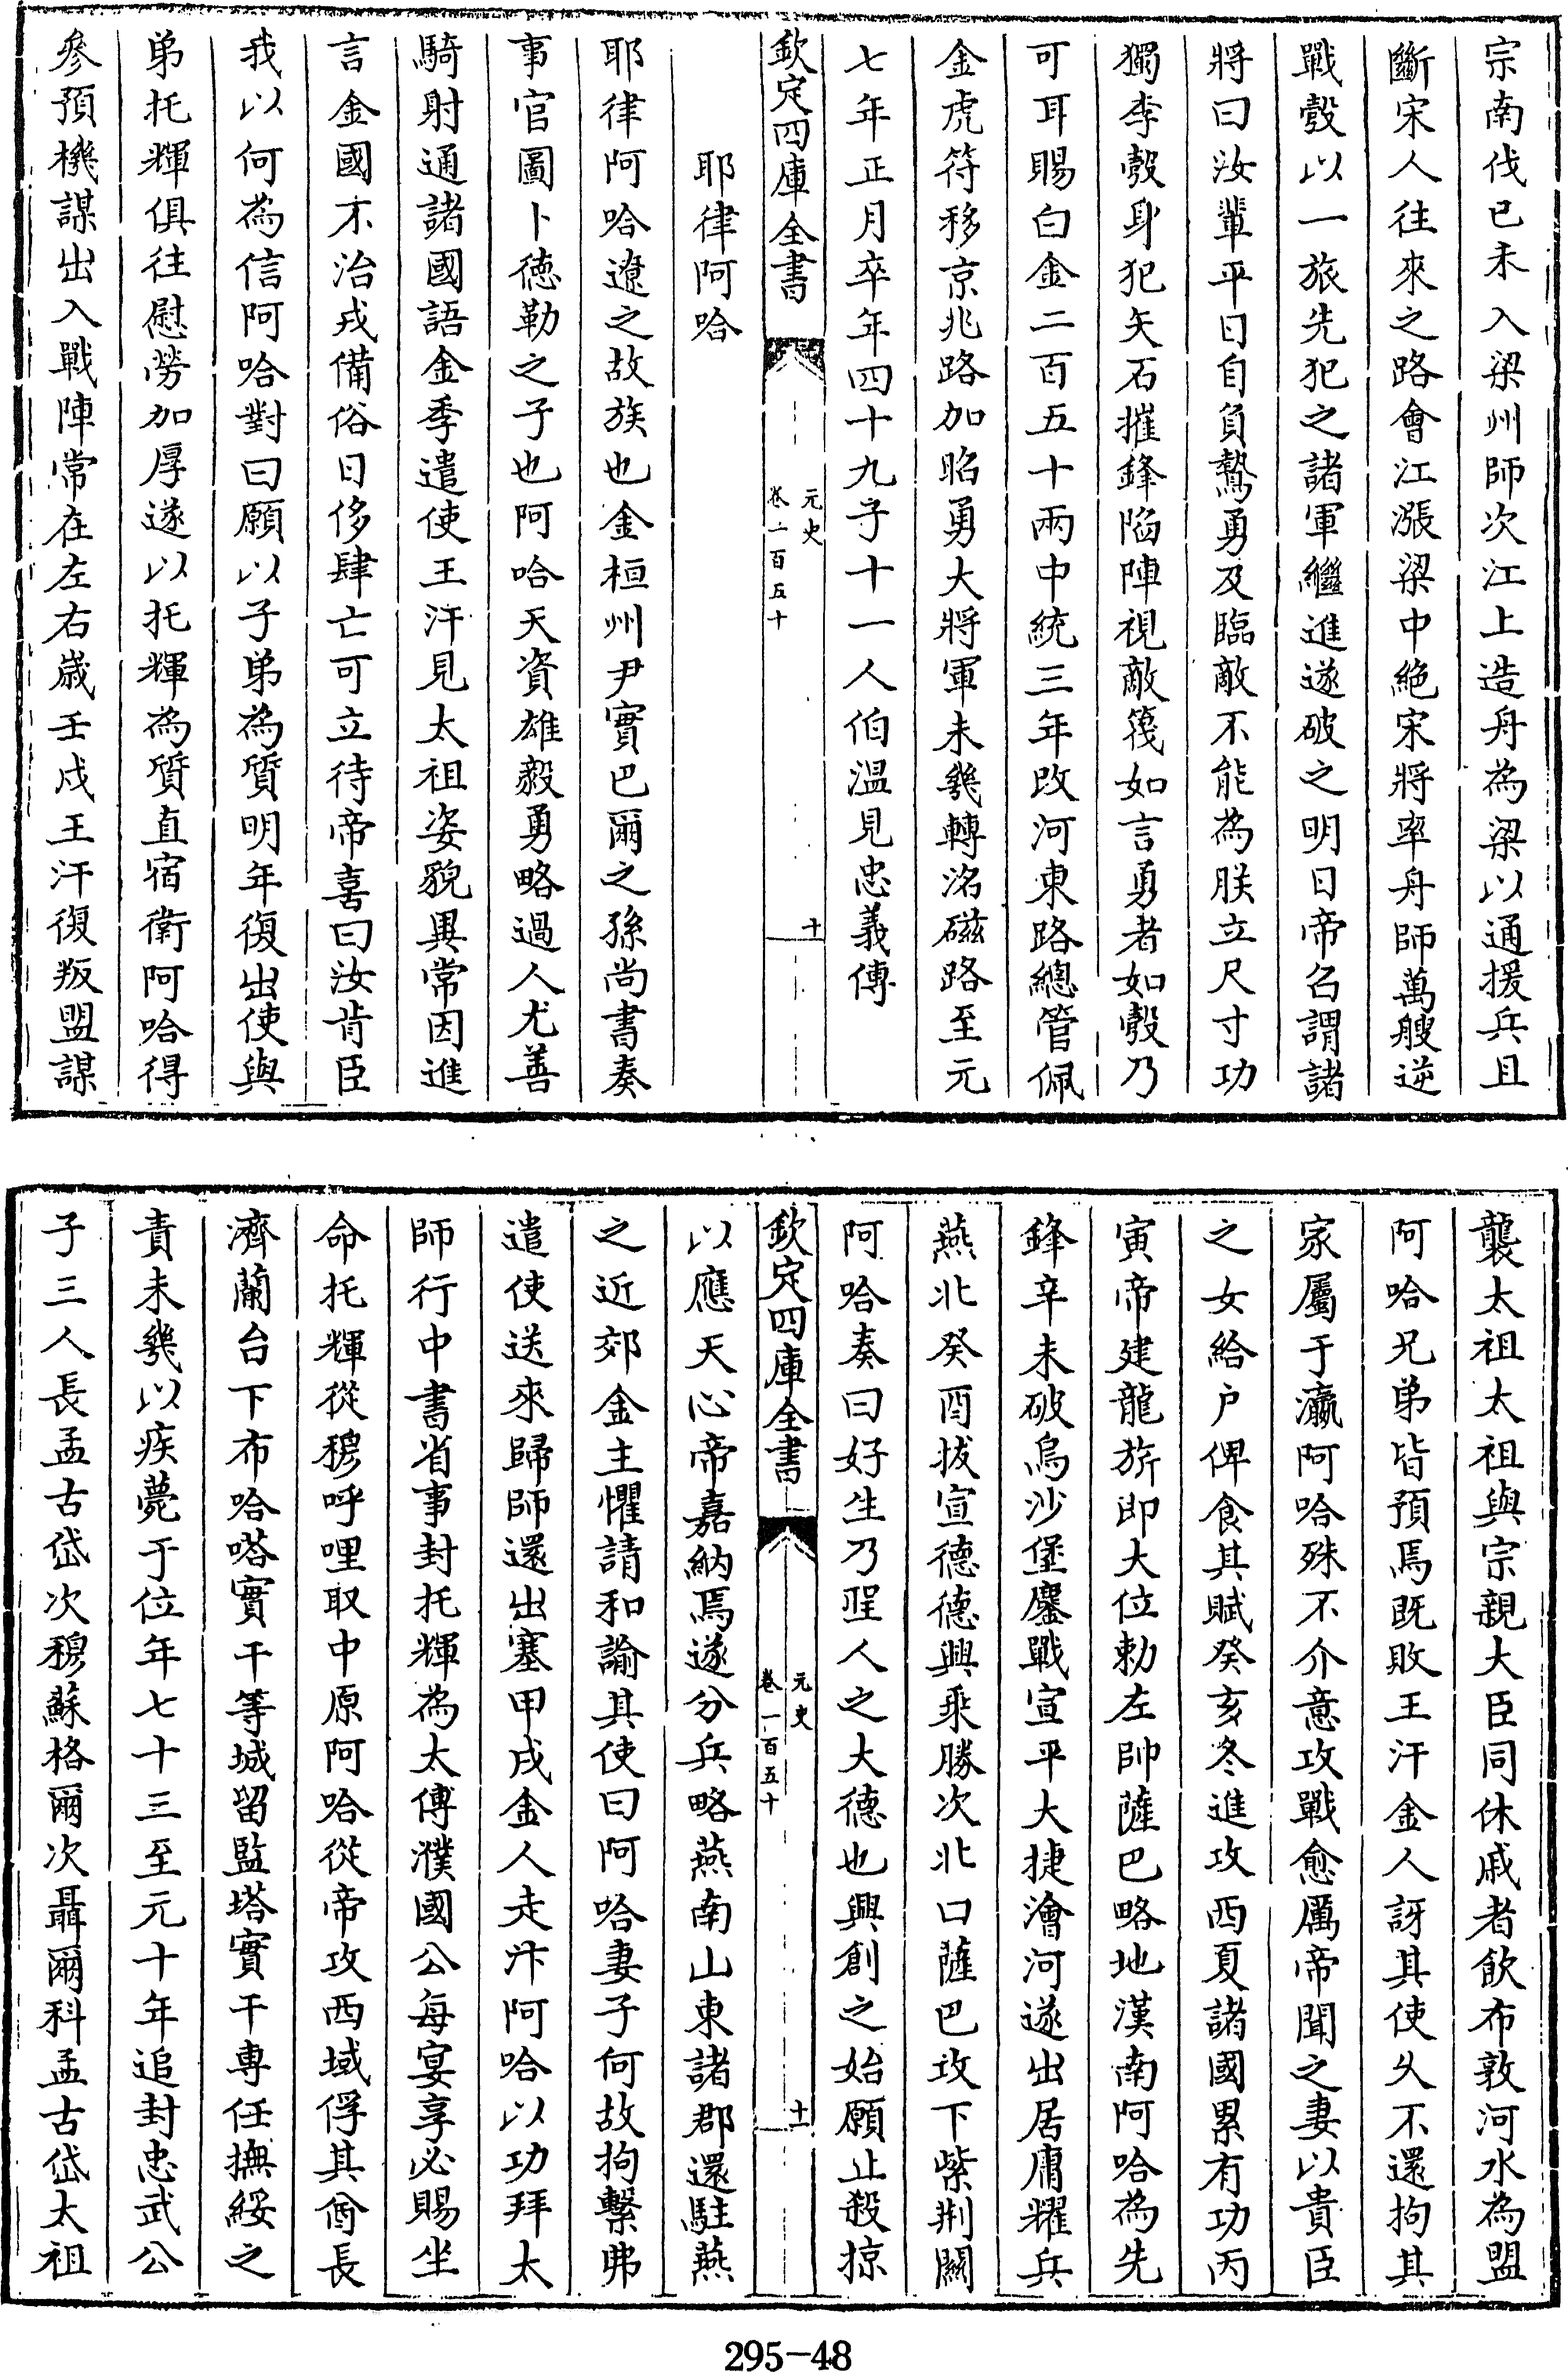 宗南伐已未入梁州師次江上造舟為梁以通援兵且
斷宋人往來之路會江漲梁中絶宋將率舟師萬艘逆
戰彀以一旅先犯之諸軍繼進遂破之明日帝召謂諸
將曰汝輩平日自負驁勇及臨敵不能為朕立尺寸功
獨李彀身犯矢石摧鋒陷陣視敵篾如言勇者如彀乃
可耳賜白金二百五十兩中統三年改河東路總管佩
金虎符移京兆路加昭勇大將軍未幾轉洺磁路至元
七年正月卒年四十九子十一人伯溫見忠義傳
欽定四庫全書
元史
卷一百五十
十
耶律阿哈
耶律阿哈遼之故族也金桓州尹實巴爾之孫尚書奏
事官圖卜德勒之子也阿哈天資雄毅勇略過人尤善
騎射通諸國語金季遣使王汗見太祖姿貌異常因進
言金國不治戎備俗日侈肆亡可立待帝喜曰汝肯臣
我以何為信阿哈對曰願以子弟為質明年復出使與
弟托輝俱往慰勞加厚遂以托輝為質直宿衛阿哈得
參預機謀出入戰陣常在左右歲壬戌王汗復叛盟謀
襲太祖太祖與宗親大臣同休戚者飲布敦河水為盟
阿哈兄弟皆預焉既敗王汗金人訝其使久不還拘其
家屬于瀛阿哈殊不介意攻戰愈厲帝聞之妻以貴臣
之女給户俾食其賦癸亥冬進攻西夏諸國累有功丙
寅帝建龍旂即大位勅左帥薩巴略地漢南阿哈為先
鋒辛未破烏沙堡鏖戰宣平大捷澮河遂出居庸耀兵
燕北癸酉拔宣德德興乘勝次北口薩巴攻下紫荆關
阿哈奏曰好生乃聖人之大德也興創之始願止殺掠
欽定四庫全書
元史
卷一百五十
十一
以應天心帝嘉納焉遂分兵略燕南山東諸郡還駐燕
之近郊金主懼請和諭其使曰阿哈妻子何故拘繫弗
遣使送來歸師還出塞甲戌金人走汴阿哈以功拜太
師行中書省事封托輝為太傅濮國公每宴享必賜坐
命托輝從穆呼哩取中原阿哈從帝攻西域俘其酋長
濟蘭台下布哈嗒實干等城留監塔實干專任撫綏之
責未幾以疾薨于位年七十三至元十年追封忠武公
子三人長孟古岱次穆蘇格爾次聶爾科孟古岱太祖
295-48